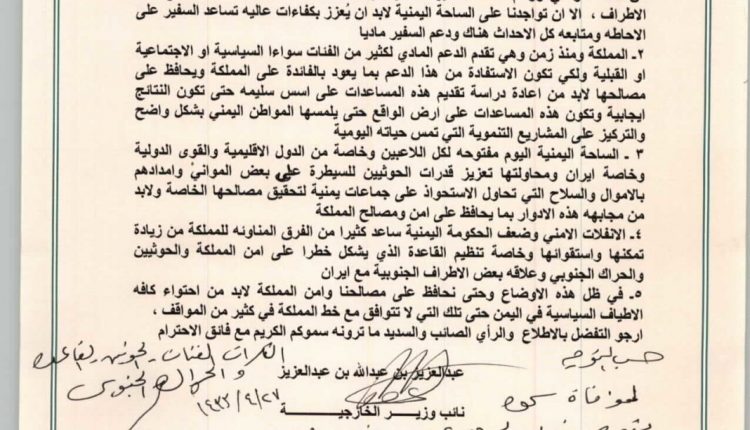 الاطراف ، الا ان تواجدنا على الساحة اليمنية لابد ان يُعزز بكفاءات عاليه تساعد السفير على
الاحاطه ومتابعه كل الاحداث هناك ودعم السفير ماديا
٢ـ المملكة ومنذ زمن وهي تقدم الدعم المادي لكثير من الفئات سواءا السياسية او الاجتماعية
او القبلية ولكي تكون الاستفادة من هذا الدعم بما يعود بالفائدة على المملكة ويحافظ على
مصالحها لابد من اعادة دراسة تقديم هذه المساعدات على اسس سليمه حتى تكون النتائج
ايجابية وتكون هذه المساعدات على ارض الواقع حتى يلمسها المواطن اليمني بشكل واضح
والتركيز على المشاريع التنموية التي تمس حياته اليومية
٣ ـ الساحة اليمنية اليوم مفتوحه لكل اللاعبين وخاصة من الدول الاقليمية والقوى الدولية
وخاصة ايران ومحاولتها تعزيز قدرات الحوثيين للسيطرة على بعض الموانئ وامدادهم
بالاموال والسلاح التي تحاول الاستحواذ على جماعات يمنية لتحقيق مصالحها الخاصة ولابد
من مجابهه هذه الادوار بما يحافظ على امن ومصالح المملكة
٤ـ الانفلات الامني وضعف الحكومة اليمنية ساعد كثيرا من الفرق المناونه للمملكة من زيادة
تمكنها واستقوائها وخاصة تنظيم القاعدة الذي يشكل خطرا على امن المملكة والحوثيين
والحراك الجنوبي وعلاقه بعض الاطراف الجنوبية مع ايران
٥ـ في ظل هذه الاوضاع وحتى نحافظ على مصالحنا وامن المملكة لابد من احتواء كافه
الاطياف السياسية في اليمن حتى تلك التي لا تتوافق مع خط المملكة في كثير من المواقف ،
ارجو التفضل بالاطلاع والرأي الصائب والسديد ما ترونه سموكم الكريم مع فائق الاحترام
حسب التوجيه
عبدالعزيز بن عبدالله بن عبدالعزيز
نائب وزير الخارجية
والحراك الجنوبي
١٤٣٣/٤/٢٧